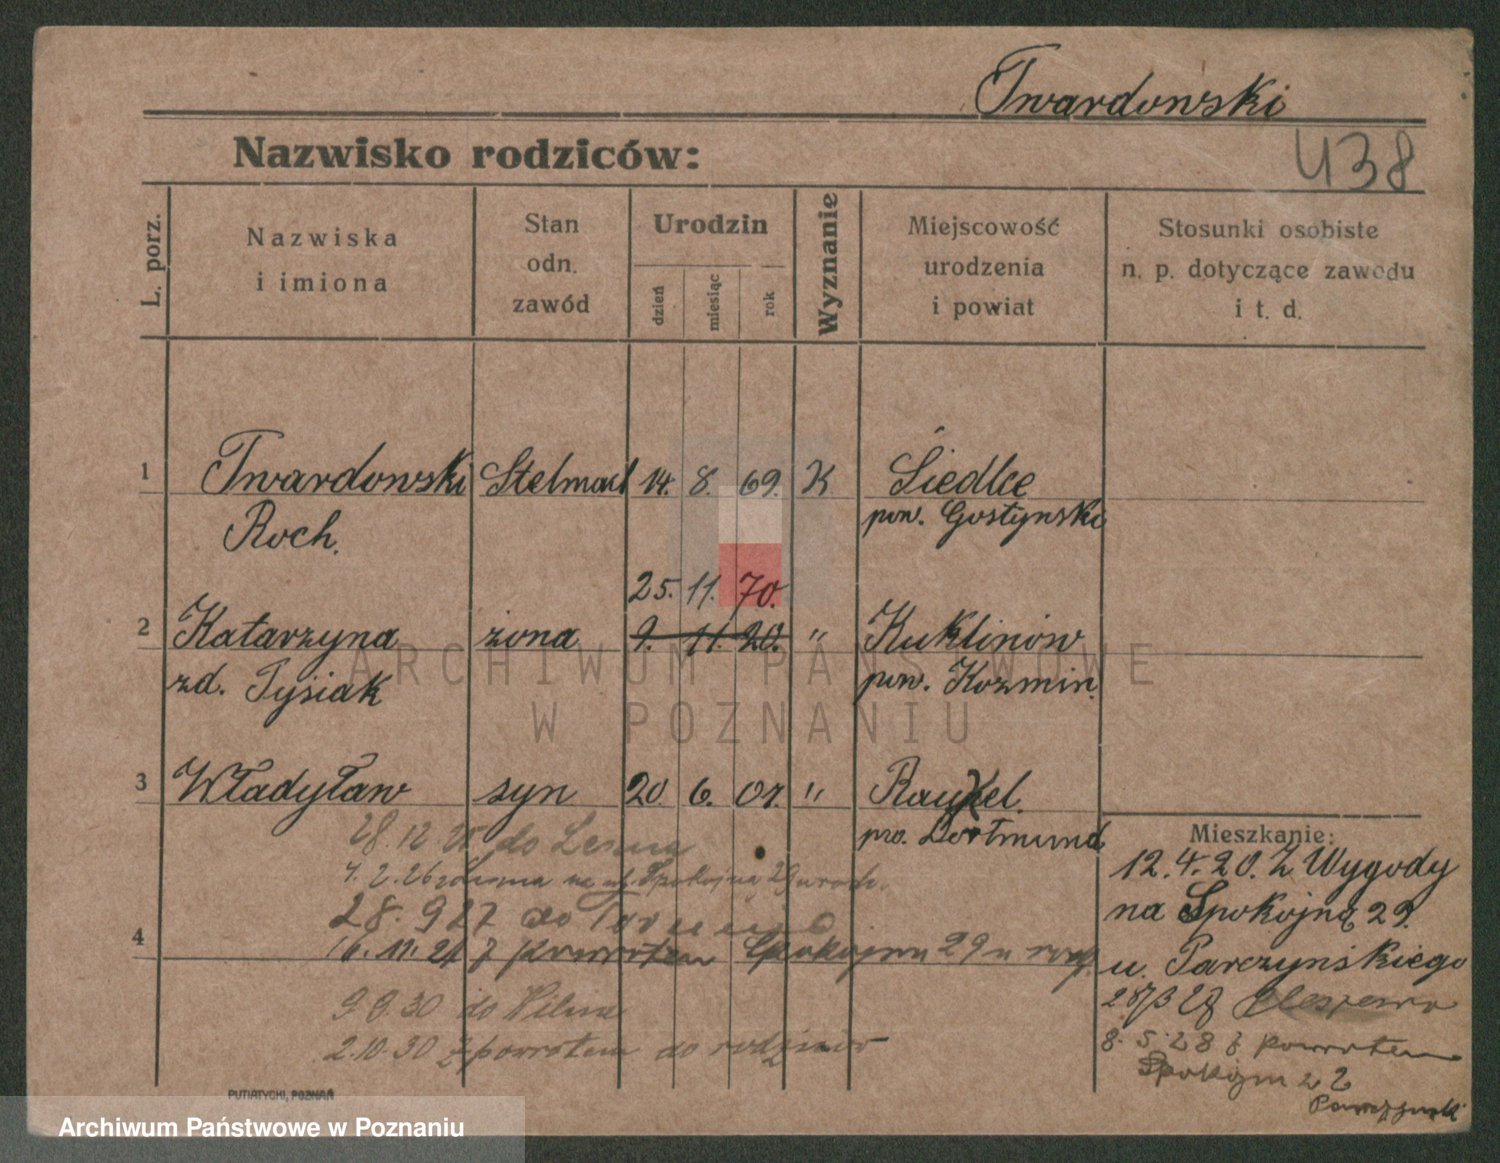 Twardowski
Nazwisko rodziców:
438
L. porz.
Nazwiska
i imiona
Stan
odn.
zawód
Urodzin
dzień
miesiąc
rok
Wyznanie
Miejscowość
urodzenia
i powiat
Stosunki osobiste
n. p. dotyczące zawodu
i t. d.
1 Twardowski Stelmach 14. 8. 69. K Siedlce
Roch. pow. Gostyński
25. 11. 70.
2 Katarzyna żona 9. 11. 20. " Kuklinów
zd. Tysiak pow. Koźmin.
3 Władysław syn 20 6. 07. " Rauxel.
pro. Dortmund
28.12.25 do Leszna
7.2.26 z Leszna na ul. Spokojną 29 u rodz.
28.9 27 do Torunia
4
16.11.27 z powrotem Spokojna 29 u rodz.
9 9.30 do Wilna
2.10.30 z powrotem do rodziców
Mieszkanie:
12.4.20. Z Wygody
na Spokojną 29.
u. Parczyńskiego
28
8.5.28 z powrotem
Spokojna
PUTIATYCKI, POZNAŃ
ARCHIWUM PAŃSTWOWE
W POZNANIU
Archiwum Państwowe w Poznaniu